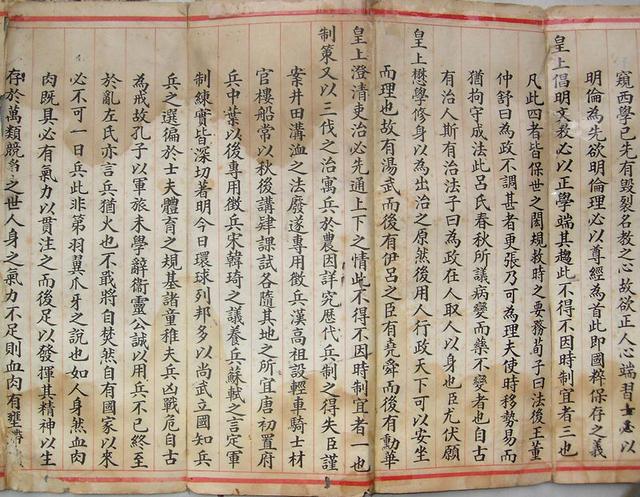 窺西學已先有毀裂名教之心故欲正人心端習士以
明倫為先欲明倫理必以尊經為首此即國粹保存之義
皇上倡明文教必以正學端其趨此不得不因時制宜者三也
凡此四者皆保世之閎規救時之要務荀子曰法後王董
仲舒曰為政不調甚者更張乃可為理夫使時移勢易而
猶拘守成法此呂氏春秋所議病變而藥不變者也自古
有治人斯有治法子曰為政在人取人以身也臣尤伏願
皇上懋學修身以為出治之原然後用人行政天下可以安坐
而理也故有湯武而後有伊呂之臣有堯舜而後有勳華
皇上澄清吏治必先通上下之情此不得不因時制宜者一也
制策又以三代之治寓兵於農因詳究歷代兵制之得失臣謹
案井田溝洫之法廢遂專用徵兵漢高祖設輕車騎士材
官樓船常以秋後講肄課試各隨其地之所宜唐初置府
兵中葉以後專用徵兵宋韓琦之議養兵蘇軾之言定軍
制練實皆深切著明今日環球列邦多以尚武立國知兵
兵之選徧於士夫體育之規基諸童稚夫兵凶戰危自古
為戒故孔子以軍旅未學辭衛靈公誠以用兵不已終至
於亂左氏亦言兵猶火也不戢將自焚然自有國家以來
必不可一日兵此非第羽翼爪牙之說也如人身然血肉
肉既具必有氣力以貫注之而後足以發揮其精神以生
存於萬類競爭之世人身之氣力不足則血肉有壅滯